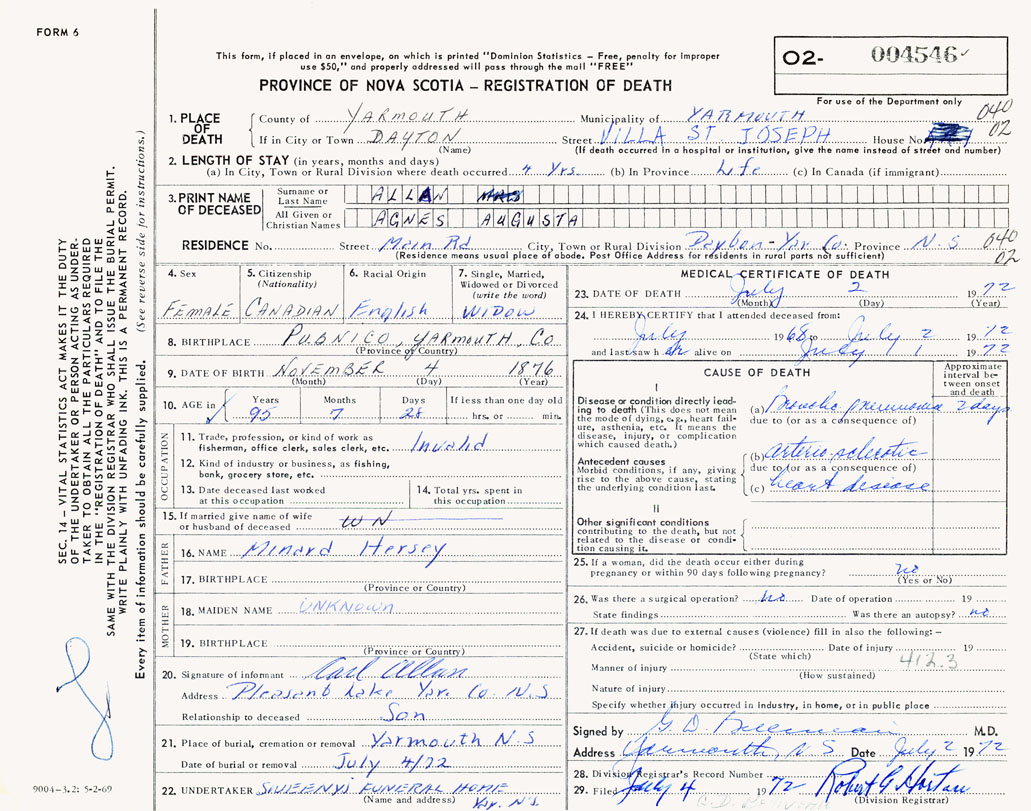 FORM 6
This form, if placed in an envelope, on which is printed "Dominion Statistics – Free, penalty for Improper
use $50," and properly addressed will pass through the mail "FREE"
PROVINCE OF NOVA SCOTIA – REGISTRATION OF DEATH
O2- 004546
For use of the Department only
040
02
1. PLACE OF DEATH
County of YARMOUTH Municipality of YARMOUTH
If in City or Town DAYTON Street VILLA ST JOSEPH House No.
(Name) (If death occurred in a hospital or institution, give the name instead of street and number)
2. LENGTH OF STAY (in years, months and days)
(a) In City, Town or Rural Division where death occurred 4 Yrs. (b) In Province Life (c) In Canada (if immigrant)
3. PRINT NAME OF DECEASED
Surname or Last Name ALLAN
All Given or Christian Names AGNES AUGUSTA
RESIDENCE No. Street Main Rd City, Town or Rural Division Dayton - Yar. Co. Province N.S 040
(Residence means usual place of abode. Post Office Address for residents in rural parts not sufficient) 02
4. Sex
FEMALE
5. Citizenship
(Nationality)
CANADIAN
6. Racial Origin
English
7. Single, Married,
Widowed or Divorced
(write the word)
WIDOW
8. BIRTHPLACE PUBNICO, YARMOUTH, Co
(Province or Country)
9. DATE OF BIRTH NOVEMBER 4 1876
(Month) (Day) (Year)
10. AGE in
Years Months Days If less than one day old
95 7 28 hrs. or min.
OCCUPATION
11. Trade, profession, or kind of work as
fisherman, office clerk, sales clerk, etc. Invalid
12. Kind of industry or business, as fishing,
bank, grocery store, etc.
13. Date deceased last worked
at this occupation
14. Total yrs. spent in
this occupation
15. If married give name of wife
or husband of deceased
FATHER
16. NAME Minard Hersey
17. BIRTHPLACE
(Province or Country)
MOTHER
18. MAIDEN NAME UNKNOWN
19. BIRTHPLACE
(Province or Country)
20. Signature of informant Carl Allan
Address Pleasant Lake Yar. Co. N.S
Relationship to deceased Son
21. Place of burial, cremation or removal Yarmouth N S
Date of burial or removal July 4/72
22. UNDERTAKER SWEENY'S FUNERAL HOME
(Name and address) Yar. N.S.
MEDICAL CERTIFICATE OF DEATH
23. DATE OF DEATH July 2 1972
(Month) (Day) (Year)
24. I HEREBY CERTIFY that I attended deceased from:
July 1968 to July 2 1972
and last saw her alive on July 1 1972
CAUSE OF DEATH
Approximate
interval be-
tween onset
and death
I
Disease or condition directly lead-
ing to death (This does not mean
the mode of dying, e.g., heart fail-
ure, asthenia, etc. It means the
disease, injury, or complication
which caused death.)
(a) Broncho pneumonia 2 days
due to (or as a consequence of)
Antecedent causes
Morbid conditions, if any, giving
rise to the above cause, stating
the underlying condition last.
(b) arterio sclerotic
due to (or as a consequence of)
(c) heart disease
II
Other significant conditions
contributing to the death, but not
related to the disease or condi-
tion causing it.
25. If a woman, did the death occur either during
pregnancy or within 90 days following pregnancy? no
(Yes or No)
26. Was there a surgical operation? No Date of operation 19
State findings Was there an autopsy? no
27. If death was due to external causes (violence) fill in also the following: –
Accident, suicide or homicide? Date of injury 19
(State which) 412.3
Manner of injury
(How sustained)
Nature of injury
Specify whether injury occurred in industry, in home, or in public place
Signed by M.D.
Address Yarmouth, N S Date July 2 1972
28. Division Registrar's Record Number
29. Filed July 4 1972 Robert G Horton
(Division Registrar)
SEC. 14 – VITAL STATISTICS ACT MAKES IT THE DUTY
OF THE UNDERTAKER OR PERSON ACTING AS UNDER-
TAKER TO OBTAIN ALL THE PARTICULARS REQUIRED
IN THE "REGISTRATION OF DEATH" AND TO FILE THE
SAME WITH THE DIVISION REGISTRAR WHO SHALL ISSUE THE BURIAL PERMIT.
WRITE PLAINLY WITH UNFADING INK. THIS IS A PERMANENT RECORD.
Every item of information should be carefully supplied. (See reverse side for instructions.)
9004-3.2: 5-2-69